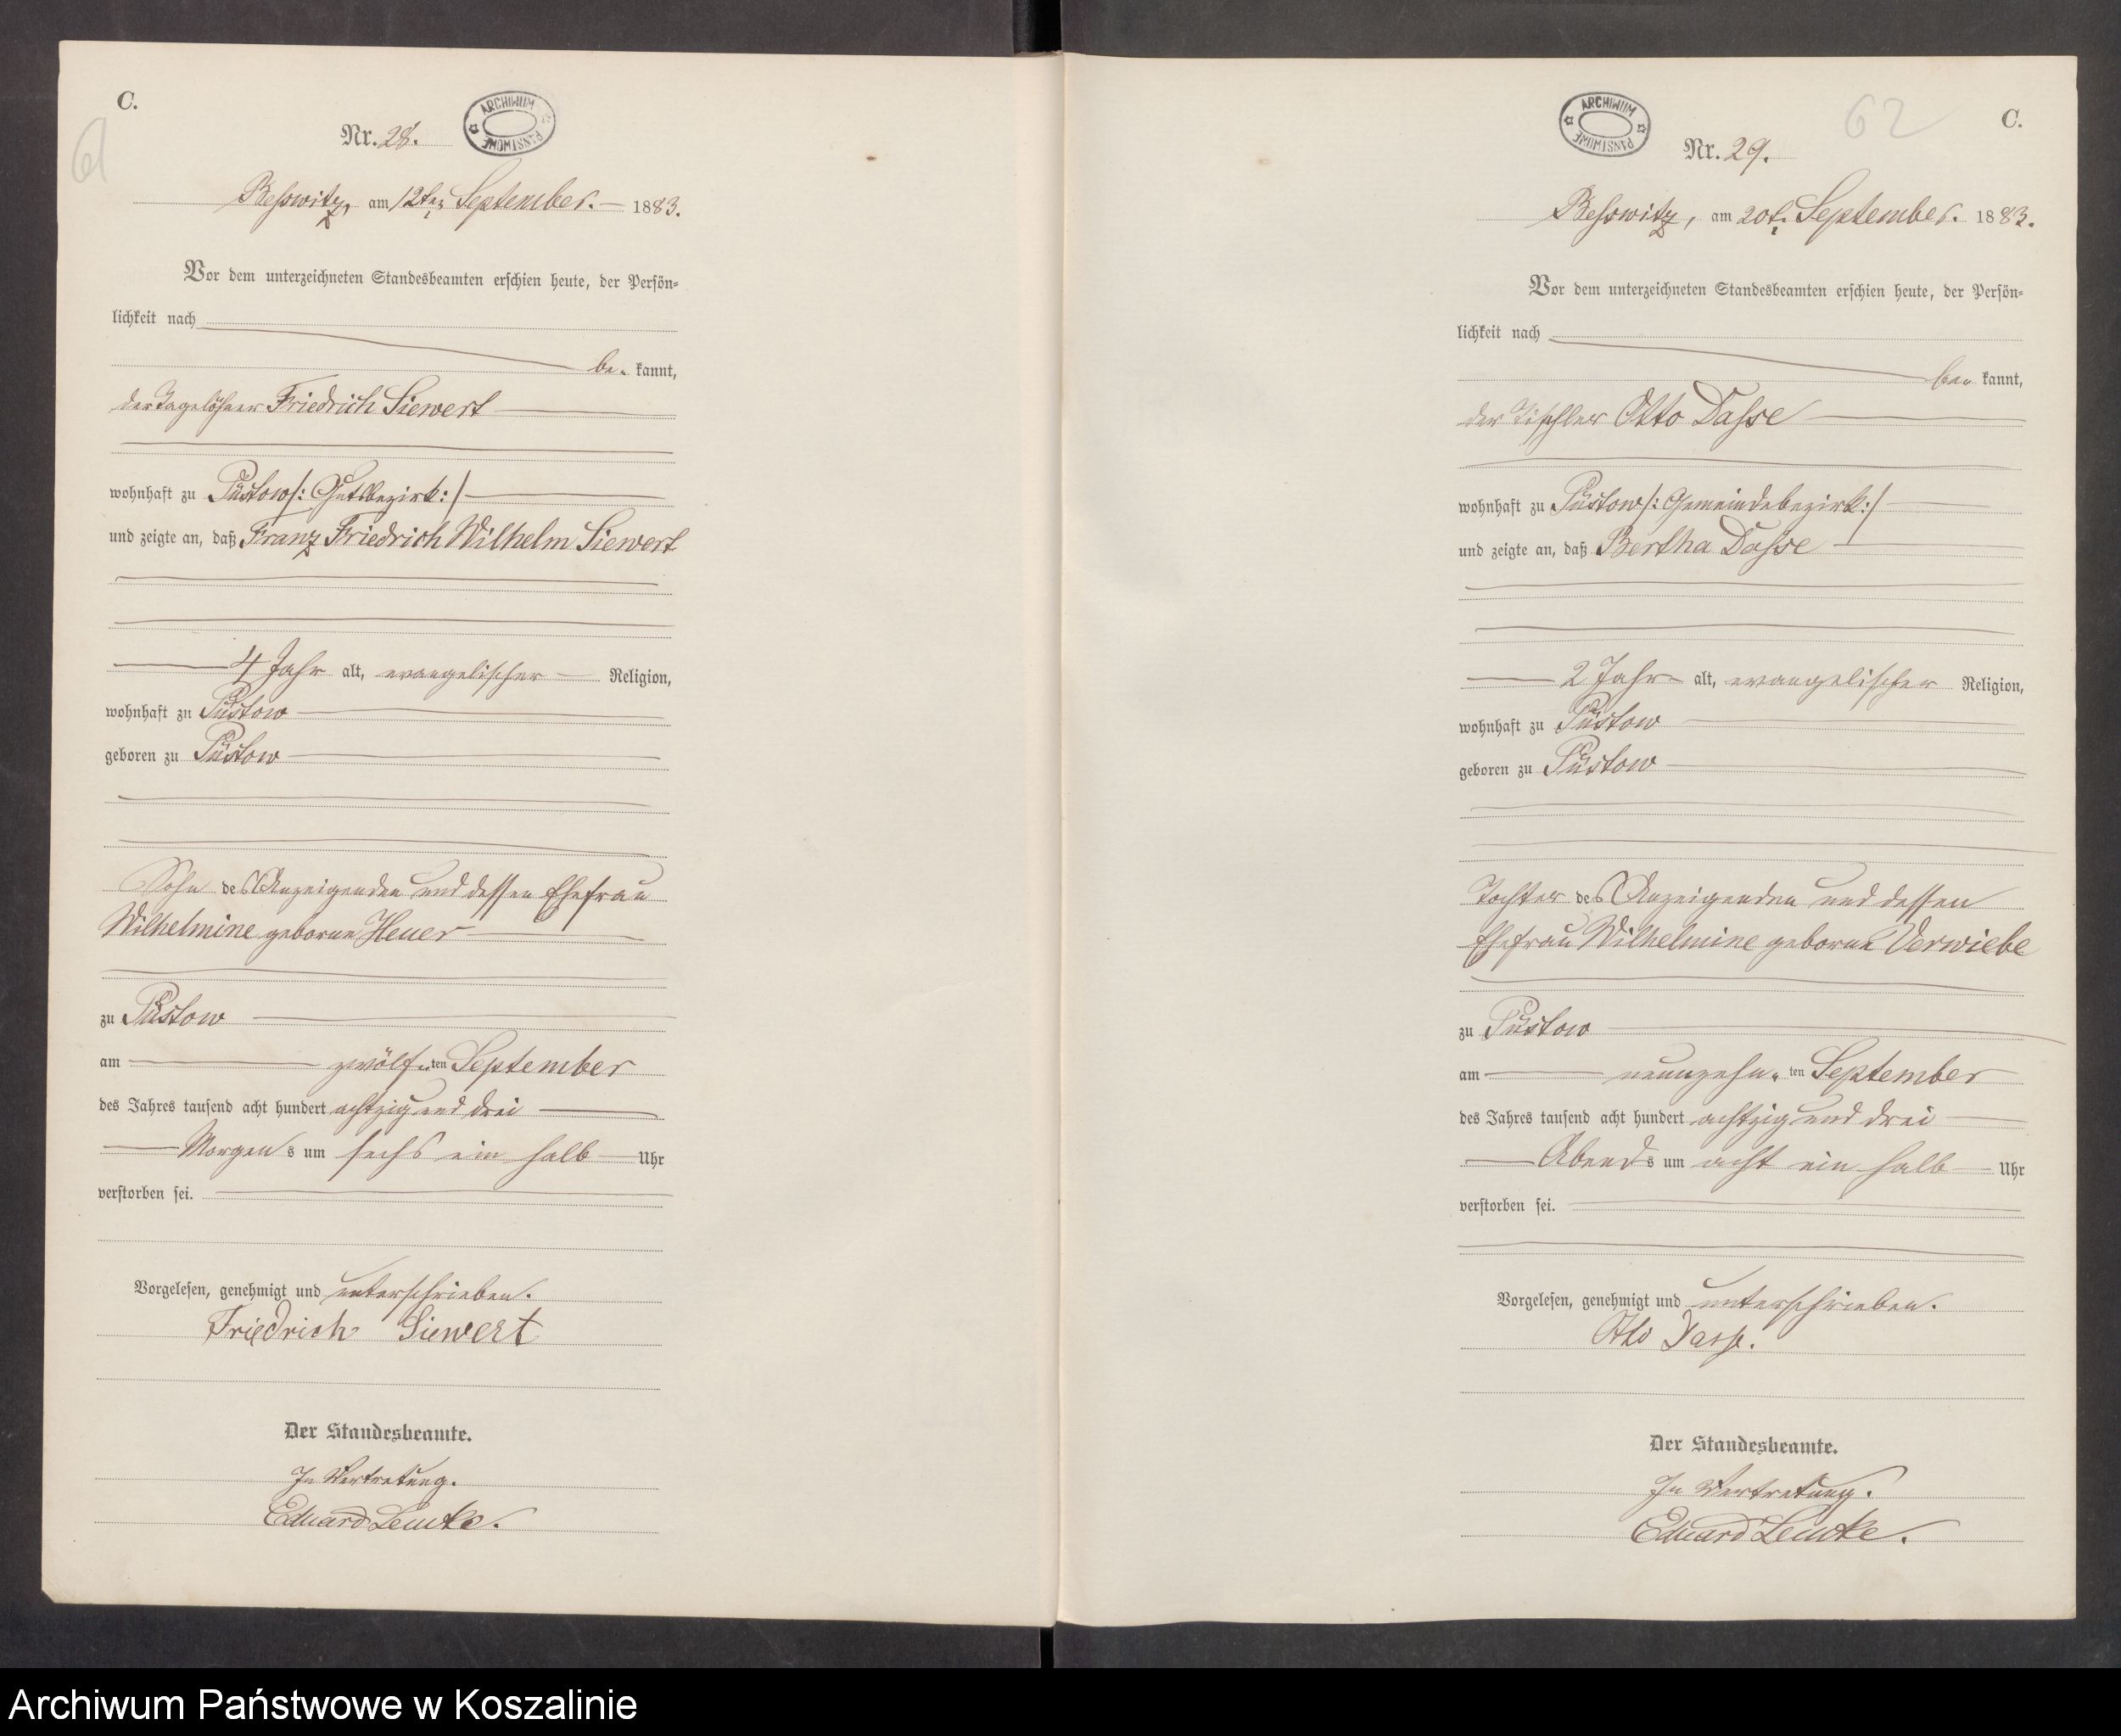 C.
61
Nr. 28.
ARCHIWUM PAŃSTWOWE
Besswitz, am 12ten September. 1883.
Vor dem unterzeichneten Standesbeamten erschien heute, der Persön-
lichkeit nach
be- kannt,
der Tagelöhner Friedrich Siewert
wohnhaft zu Püstow /: Gutsbezirk :/
und zeigte an, daß Franz Friedrich Wilhelm Siewert
4 Jahr alt, evangelischer Religion,
wohnhaft zu Püstow
geboren zu Püstow
Sohn des Anzeigenden und dessen Ehefrau
Wilhelmine geborne Heuer
zu Püstow
am zwölf-ten September
des Jahres tausend acht hundert achtzig und drei
Morgens um sechs ein halb Uhr
verstorben sei.
Vorgelesen, genehmigt und unterschrieben.
Friedrich Siewert
Der Standesbeamte.
In Vertretung.
Eduard Lemke.
ARCHIWUM PAŃSTWOWE
62
C.
Nr. 29.
Besswitz, am 20t. September. 1883.
Vor dem unterzeichneten Standesbeamten erschien heute, der Persön-
lichkeit nach
be- kannt,
der Tischler Otto Dasse
wohnhaft zu Püstow /: Gemeindebezirk :/
und zeigte an, daß Bertha Dasse
2 Jahr alt, evangelischer Religion,
wohnhaft zu Püstow
geboren zu Püstow
Tochter des Anzeigenden und dessen
Ehefrau Wilhelmine geborne Verwiebe
zu Püstow
am neunzehn-ten September
des Jahres tausend acht hundert achtzig und drei
Abends um acht ein halb Uhr
verstorben sei.
Vorgelesen, genehmigt und unterschrieben.
Otto Dasse.
Der Standesbeamte.
In Vertretung.
Eduard Lemke.
Archiwum Państwowe w Koszalinie